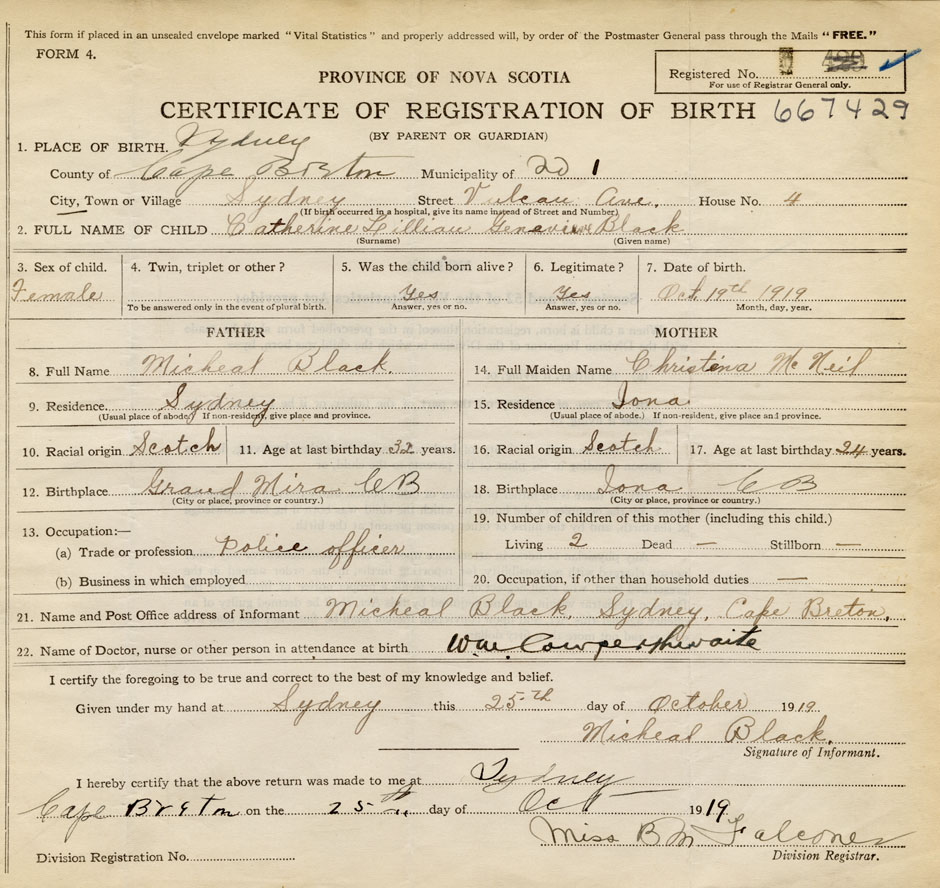 This form if placed in an unsealed envelope marked "Vital Statistics" and properly addressed will, by order of the Postmaster General pass through the Mails "FREE."
FORM 4.
PROVINCE OF NOVA SCOTIA
Registered No.
For use of Registrar General only.
CERTIFICATE OF REGISTRATION OF BIRTH 667429
(BY PARENT OR GUARDIAN)
1. PLACE OF BIRTH. Sydney
County of Cape Breton Municipality of 20 1
City, Town or Village Sydney Street Vulcan Ave. House No. 4
(If birth occurred in a hospital, give its name instead of Street and Number)
2. FULL NAME OF CHILD Catherine Lillian Genevieve Black
(Surname) (Given name)
3. Sex of child. 4. Twin, triplet or other? 5. Was the child born alive? 6. Legitimate? 7. Date of birth.
Female Yes Yes Oct. 19th 1919
To be answered only in the event of plural birth. Answer, yes or no. Answer, yes or no. Month, day, year.
FATHER MOTHER
8. Full Name Micheal Black. 14. Full Maiden Name Christena McNeil
9. Residence. Sydney 15. Residence Iona
(Usual place of abode.) If non-resident, give place and province. (Usual place of abode.) If non-resident, give place and province.
10. Racial origin Scotch 11. Age at last birthday 32 years. 16. Racial origin Scotch 17. Age at last birthday 24 years.
12. Birthplace Grand Mira C B 18. Birthplace Iona C B
(City or place, province or country.) (City or place, province or country.)
13. Occupation:— 19. Number of children of this mother (including this child.)
(a) Trade or profession Police officer Living 2 Dead — Stillborn —
(b) Business in which employed 20. Occupation, if other than household duties —
21. Name and Post Office address of Informant Micheal Black, Sydney, Cape Breton,
22. Name of Doctor, nurse or other person in attendance at birth Wm. Cowperthwaite
I certify the foregoing to be true and correct to the best of my knowledge and belief.
Given under my hand at Sydney this 25th day of October 1919.
Micheal Black.
Signature of Informant.
I hereby certify that the above return was made to me at Sydney
Cape Breton on the 25th day of Oct 1919.
Miss B M Falconer
Division Registration No. Division Registrar.